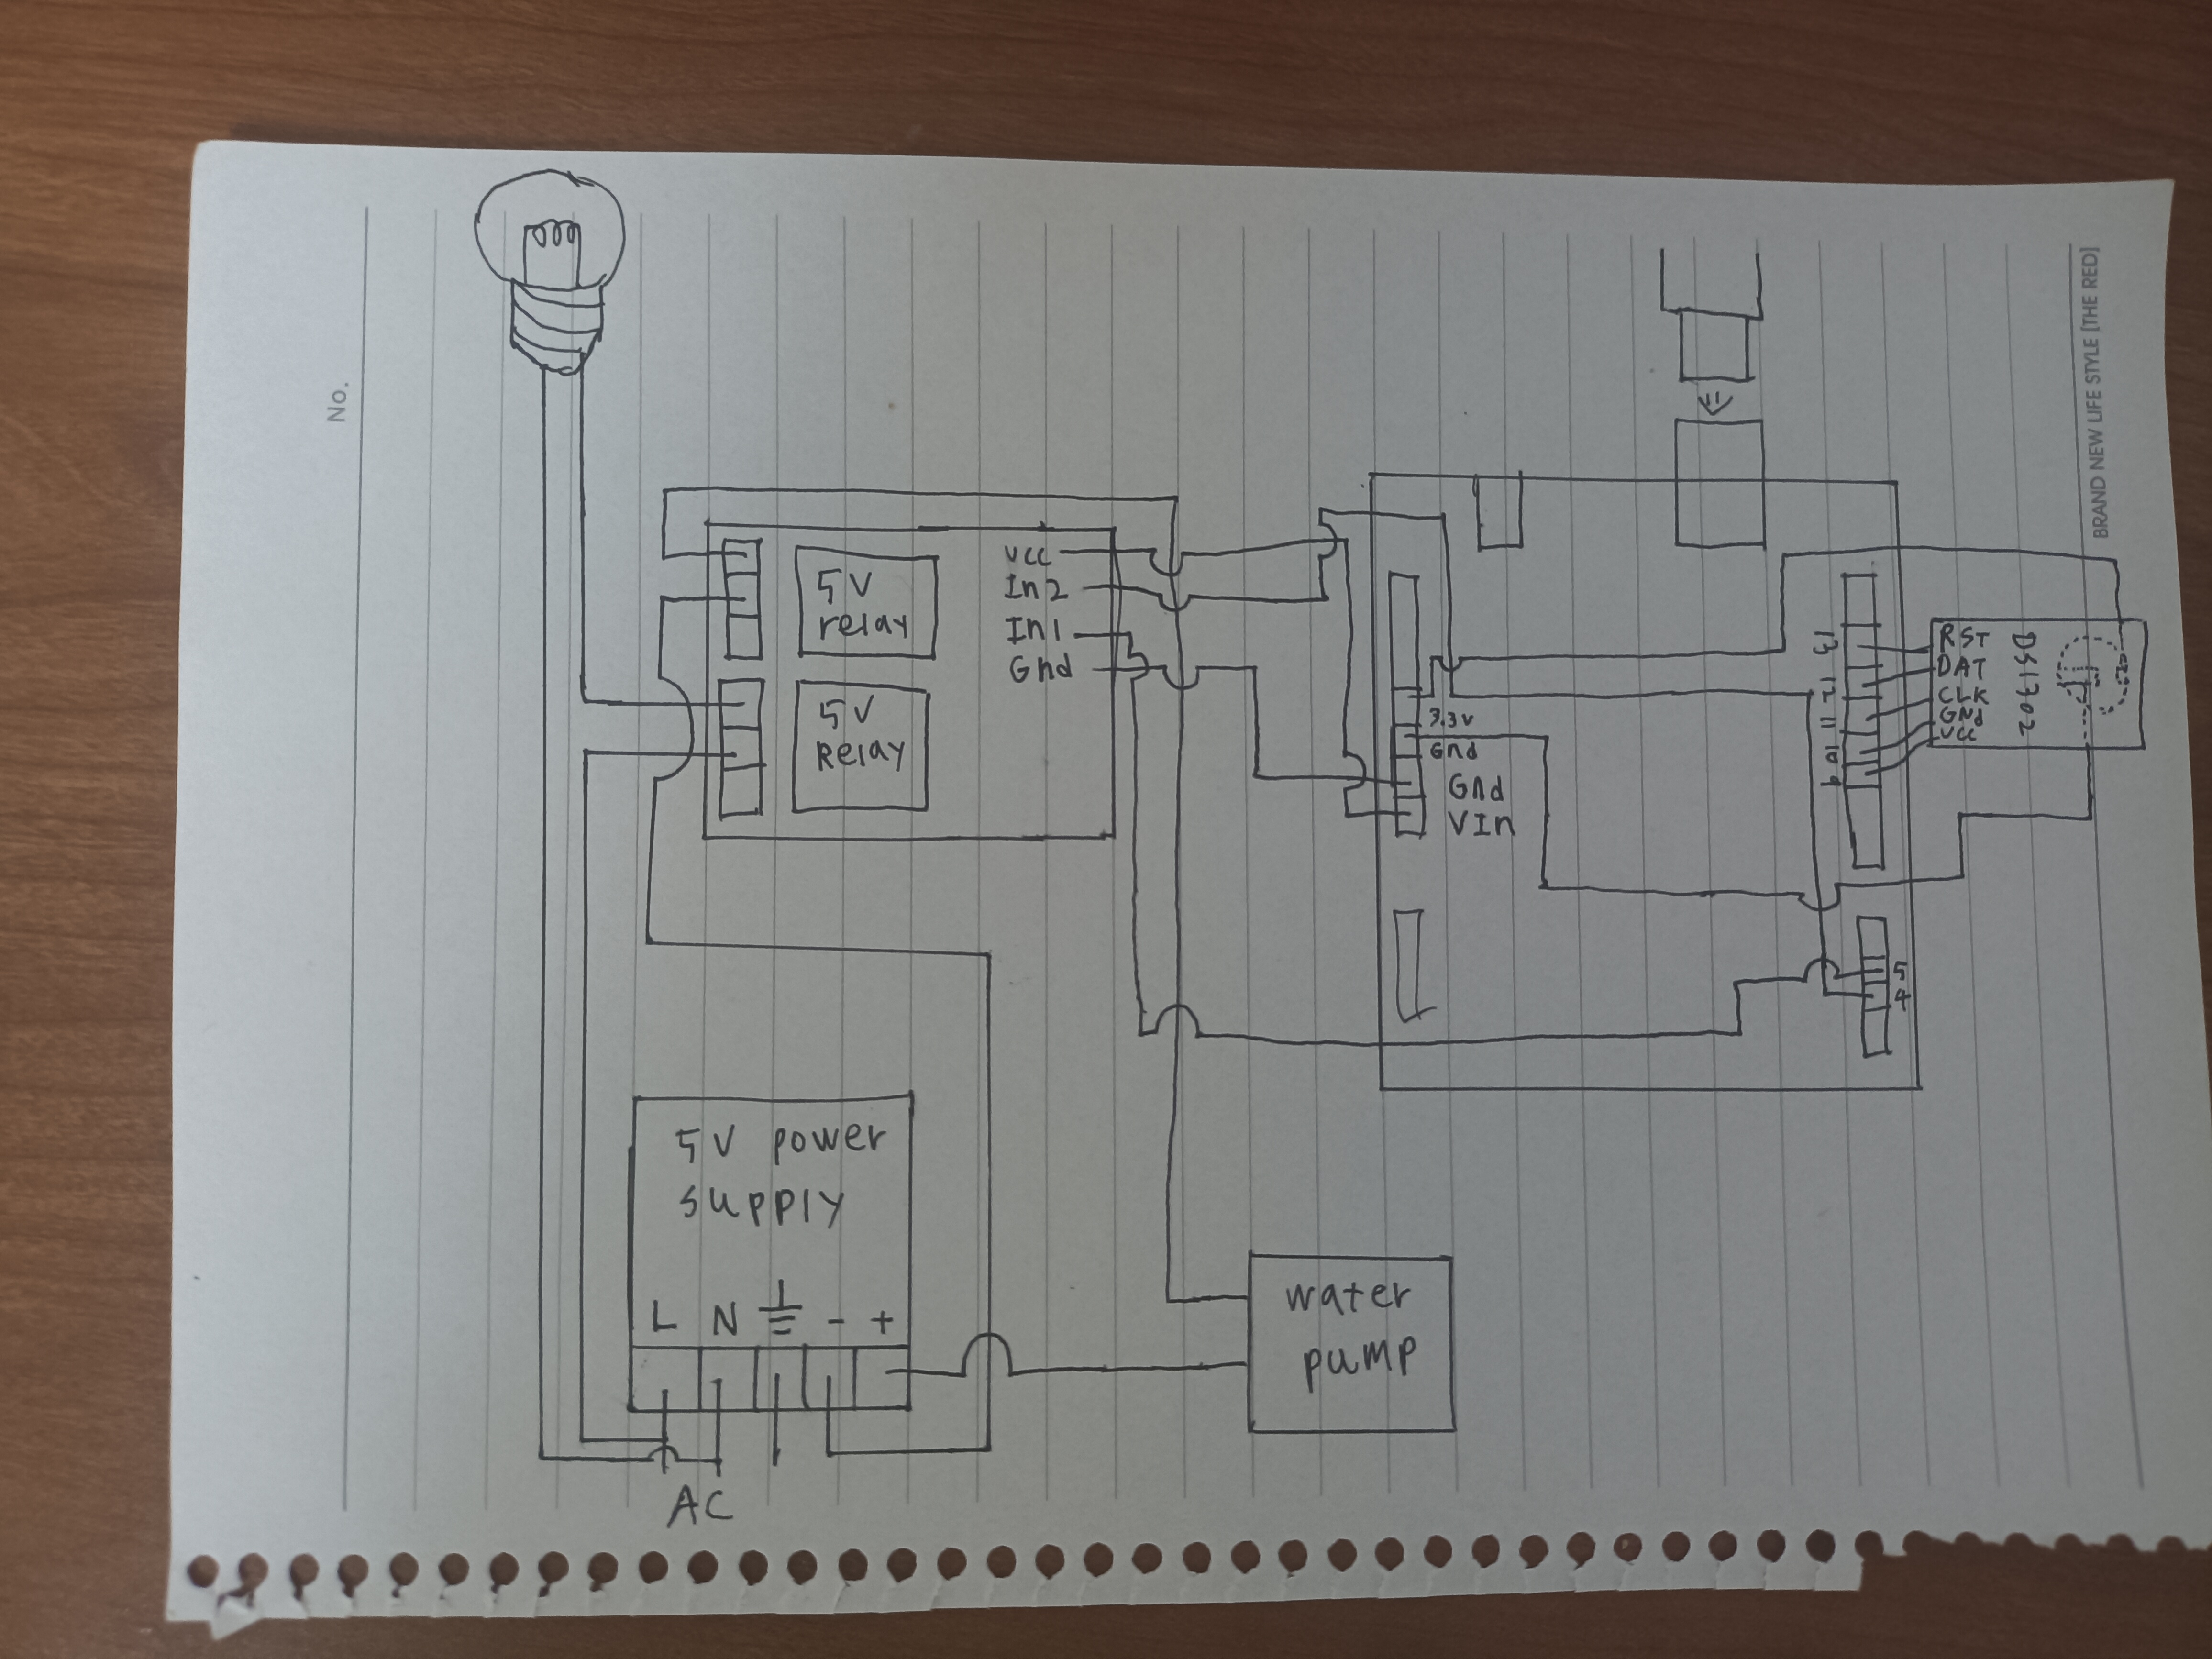 BRAND NEW LIFE STYLE [THE RED]
DS1302
RST
DAT
CLK
GNd
VCC
5
4
13 12 11 10 9
3.3V
Gnd
Gnd
VIn
water
pump
VCC
In2
In1
Gnd
5V
relay
5V
Relay
5V power
supply
L N - +
AC
No.